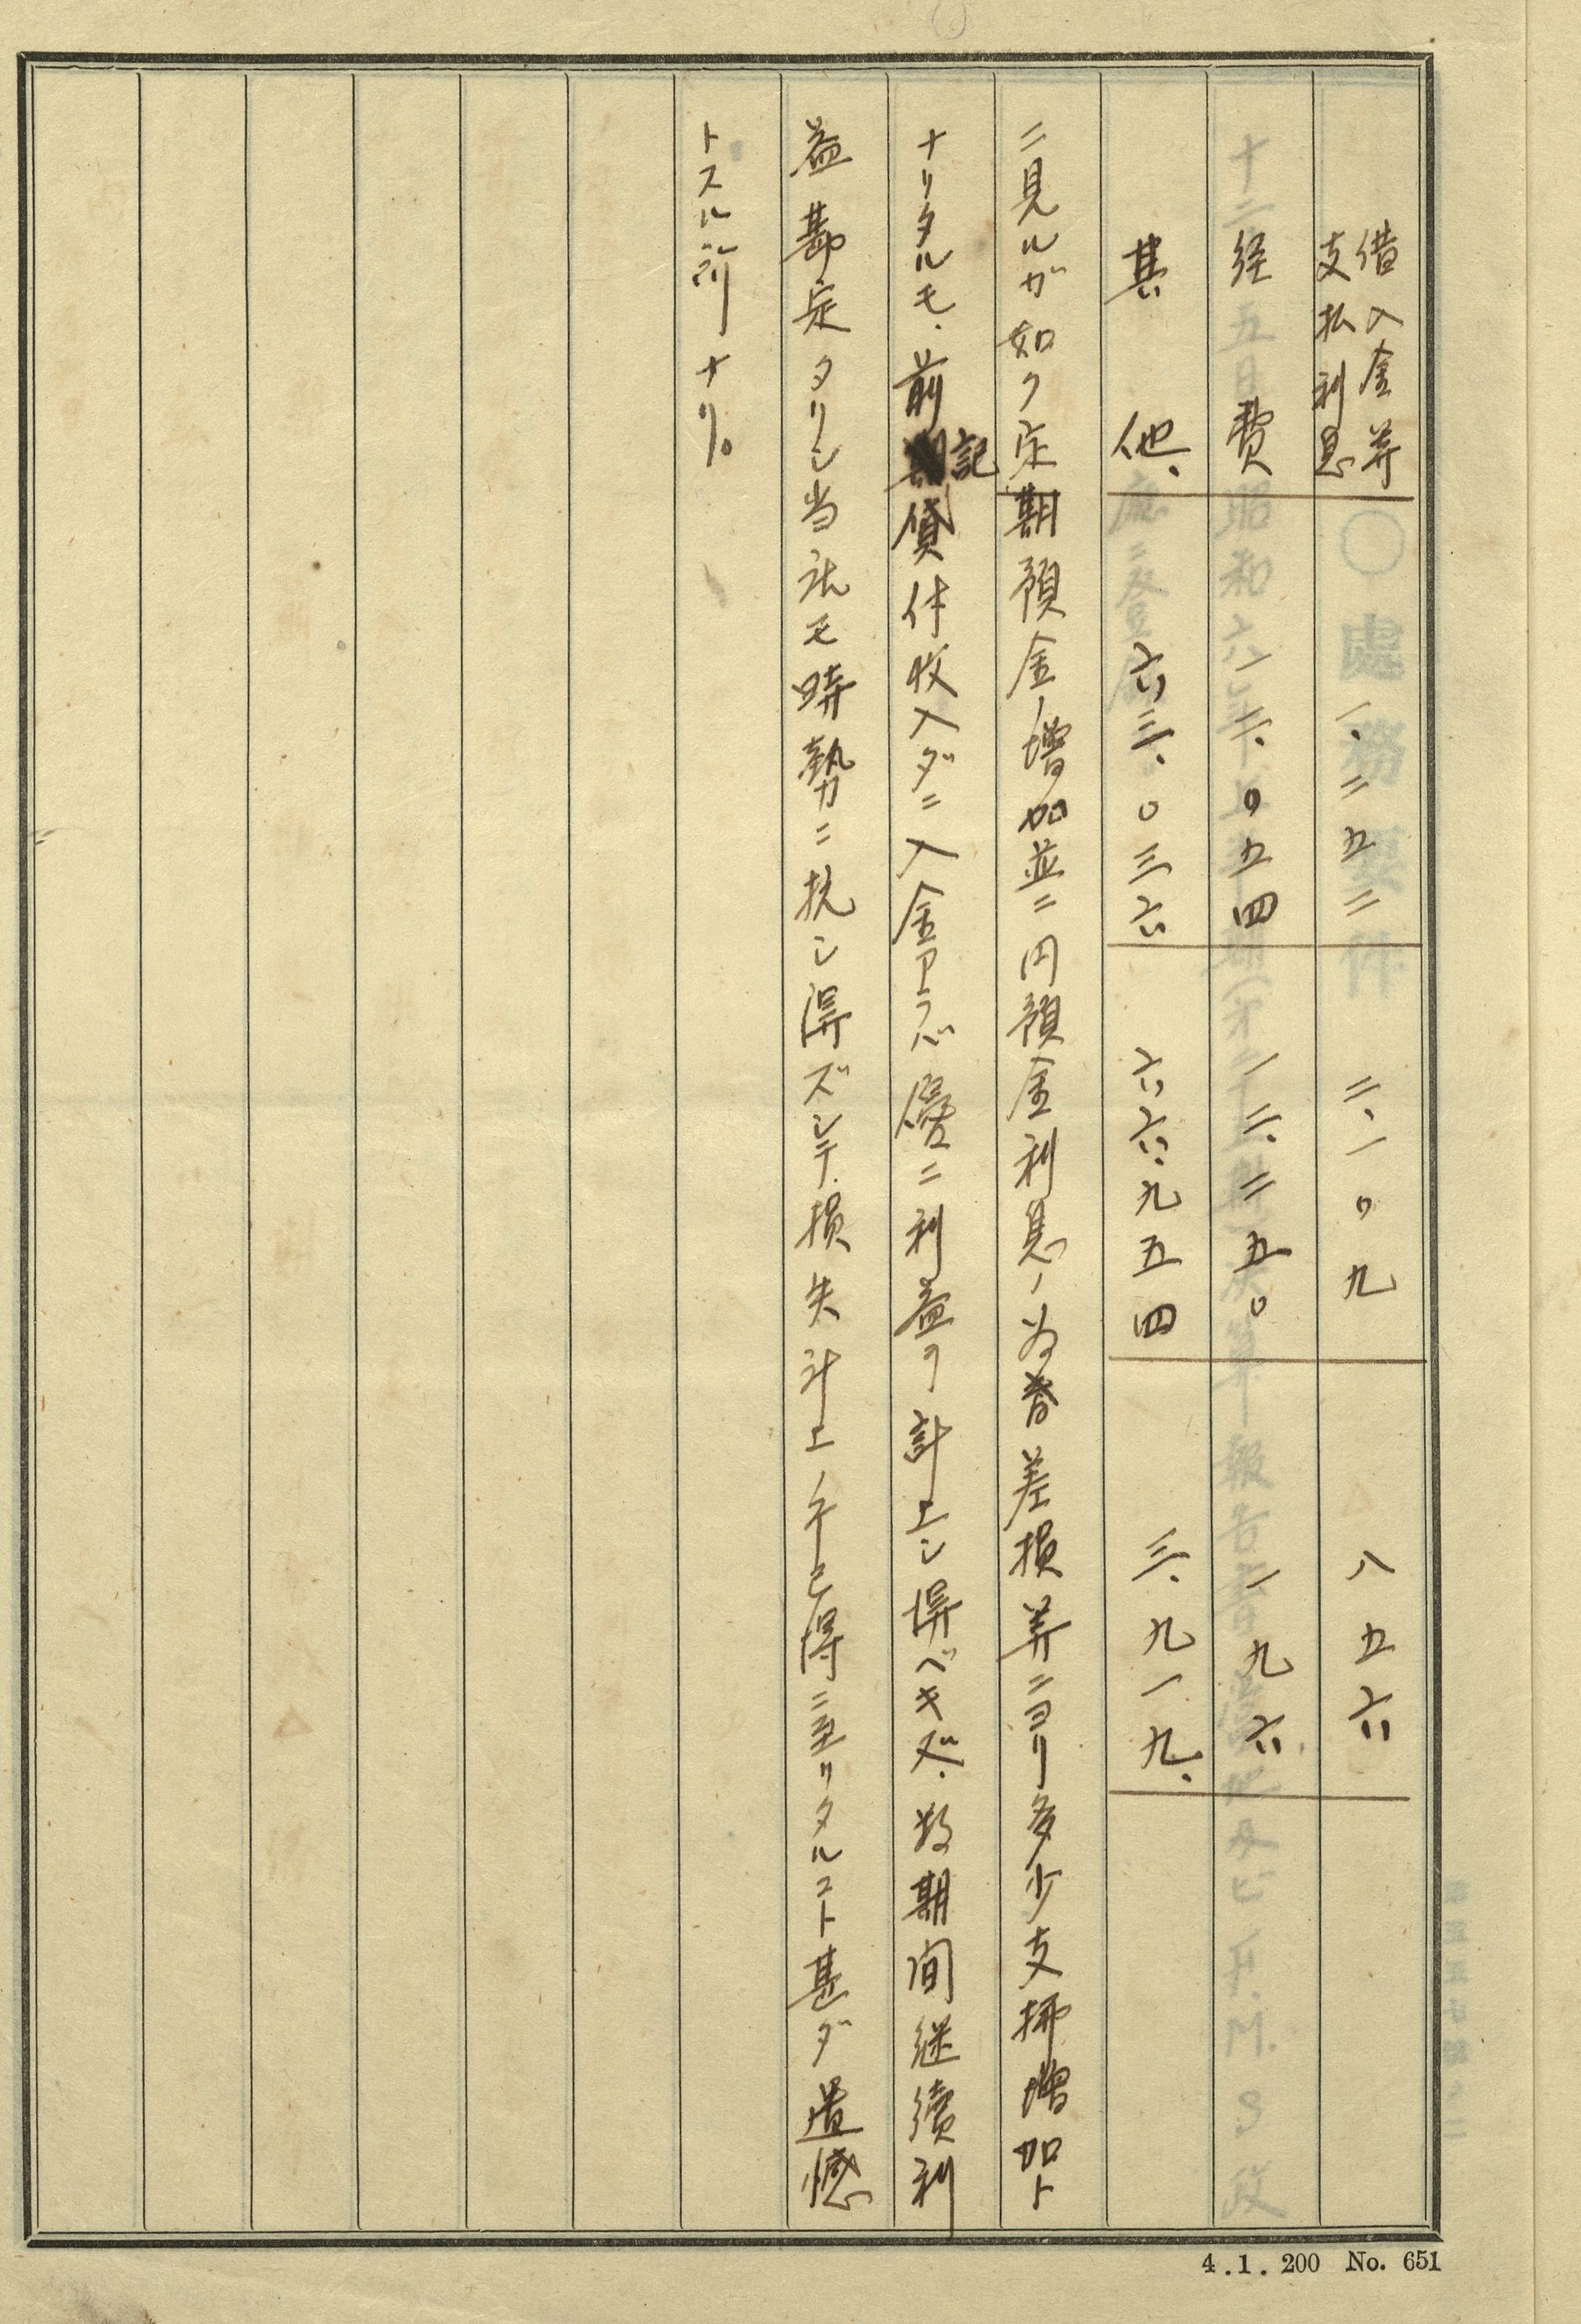 借入金并
支払利息 一、二五三 二、一〇九 八五六
経費 一三、〇五四 一三、二五〇 一九六
其他、 六三、〇三六 六六、九五四 三、九一九、
ニ見ルガ如ク定期預金ノ増加並ニ円預金利息ノ為替差損算ニヨリ多少支拂増加ト
ナリタルモ、前記貸付收入ダニ入金アラバ優ニ利益ヲ計上シ得ベキ又、数期间継續利
益勘定タリシ当社モ時勢ニ抗シ得ズシテ損失計上ノ不已得ニ至リタルコト甚ダ遺憾
トスル所ナリ。
4.1.200 No. 651